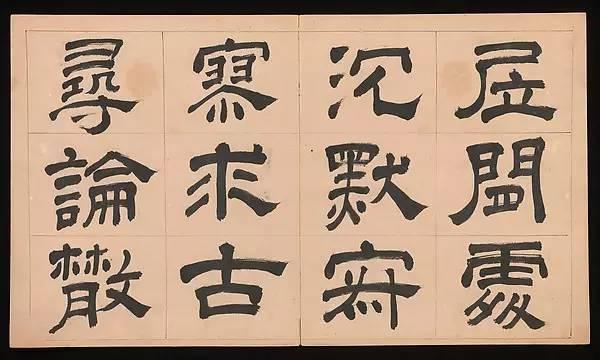 居閒處
沉默寂
寥求古
尋論散